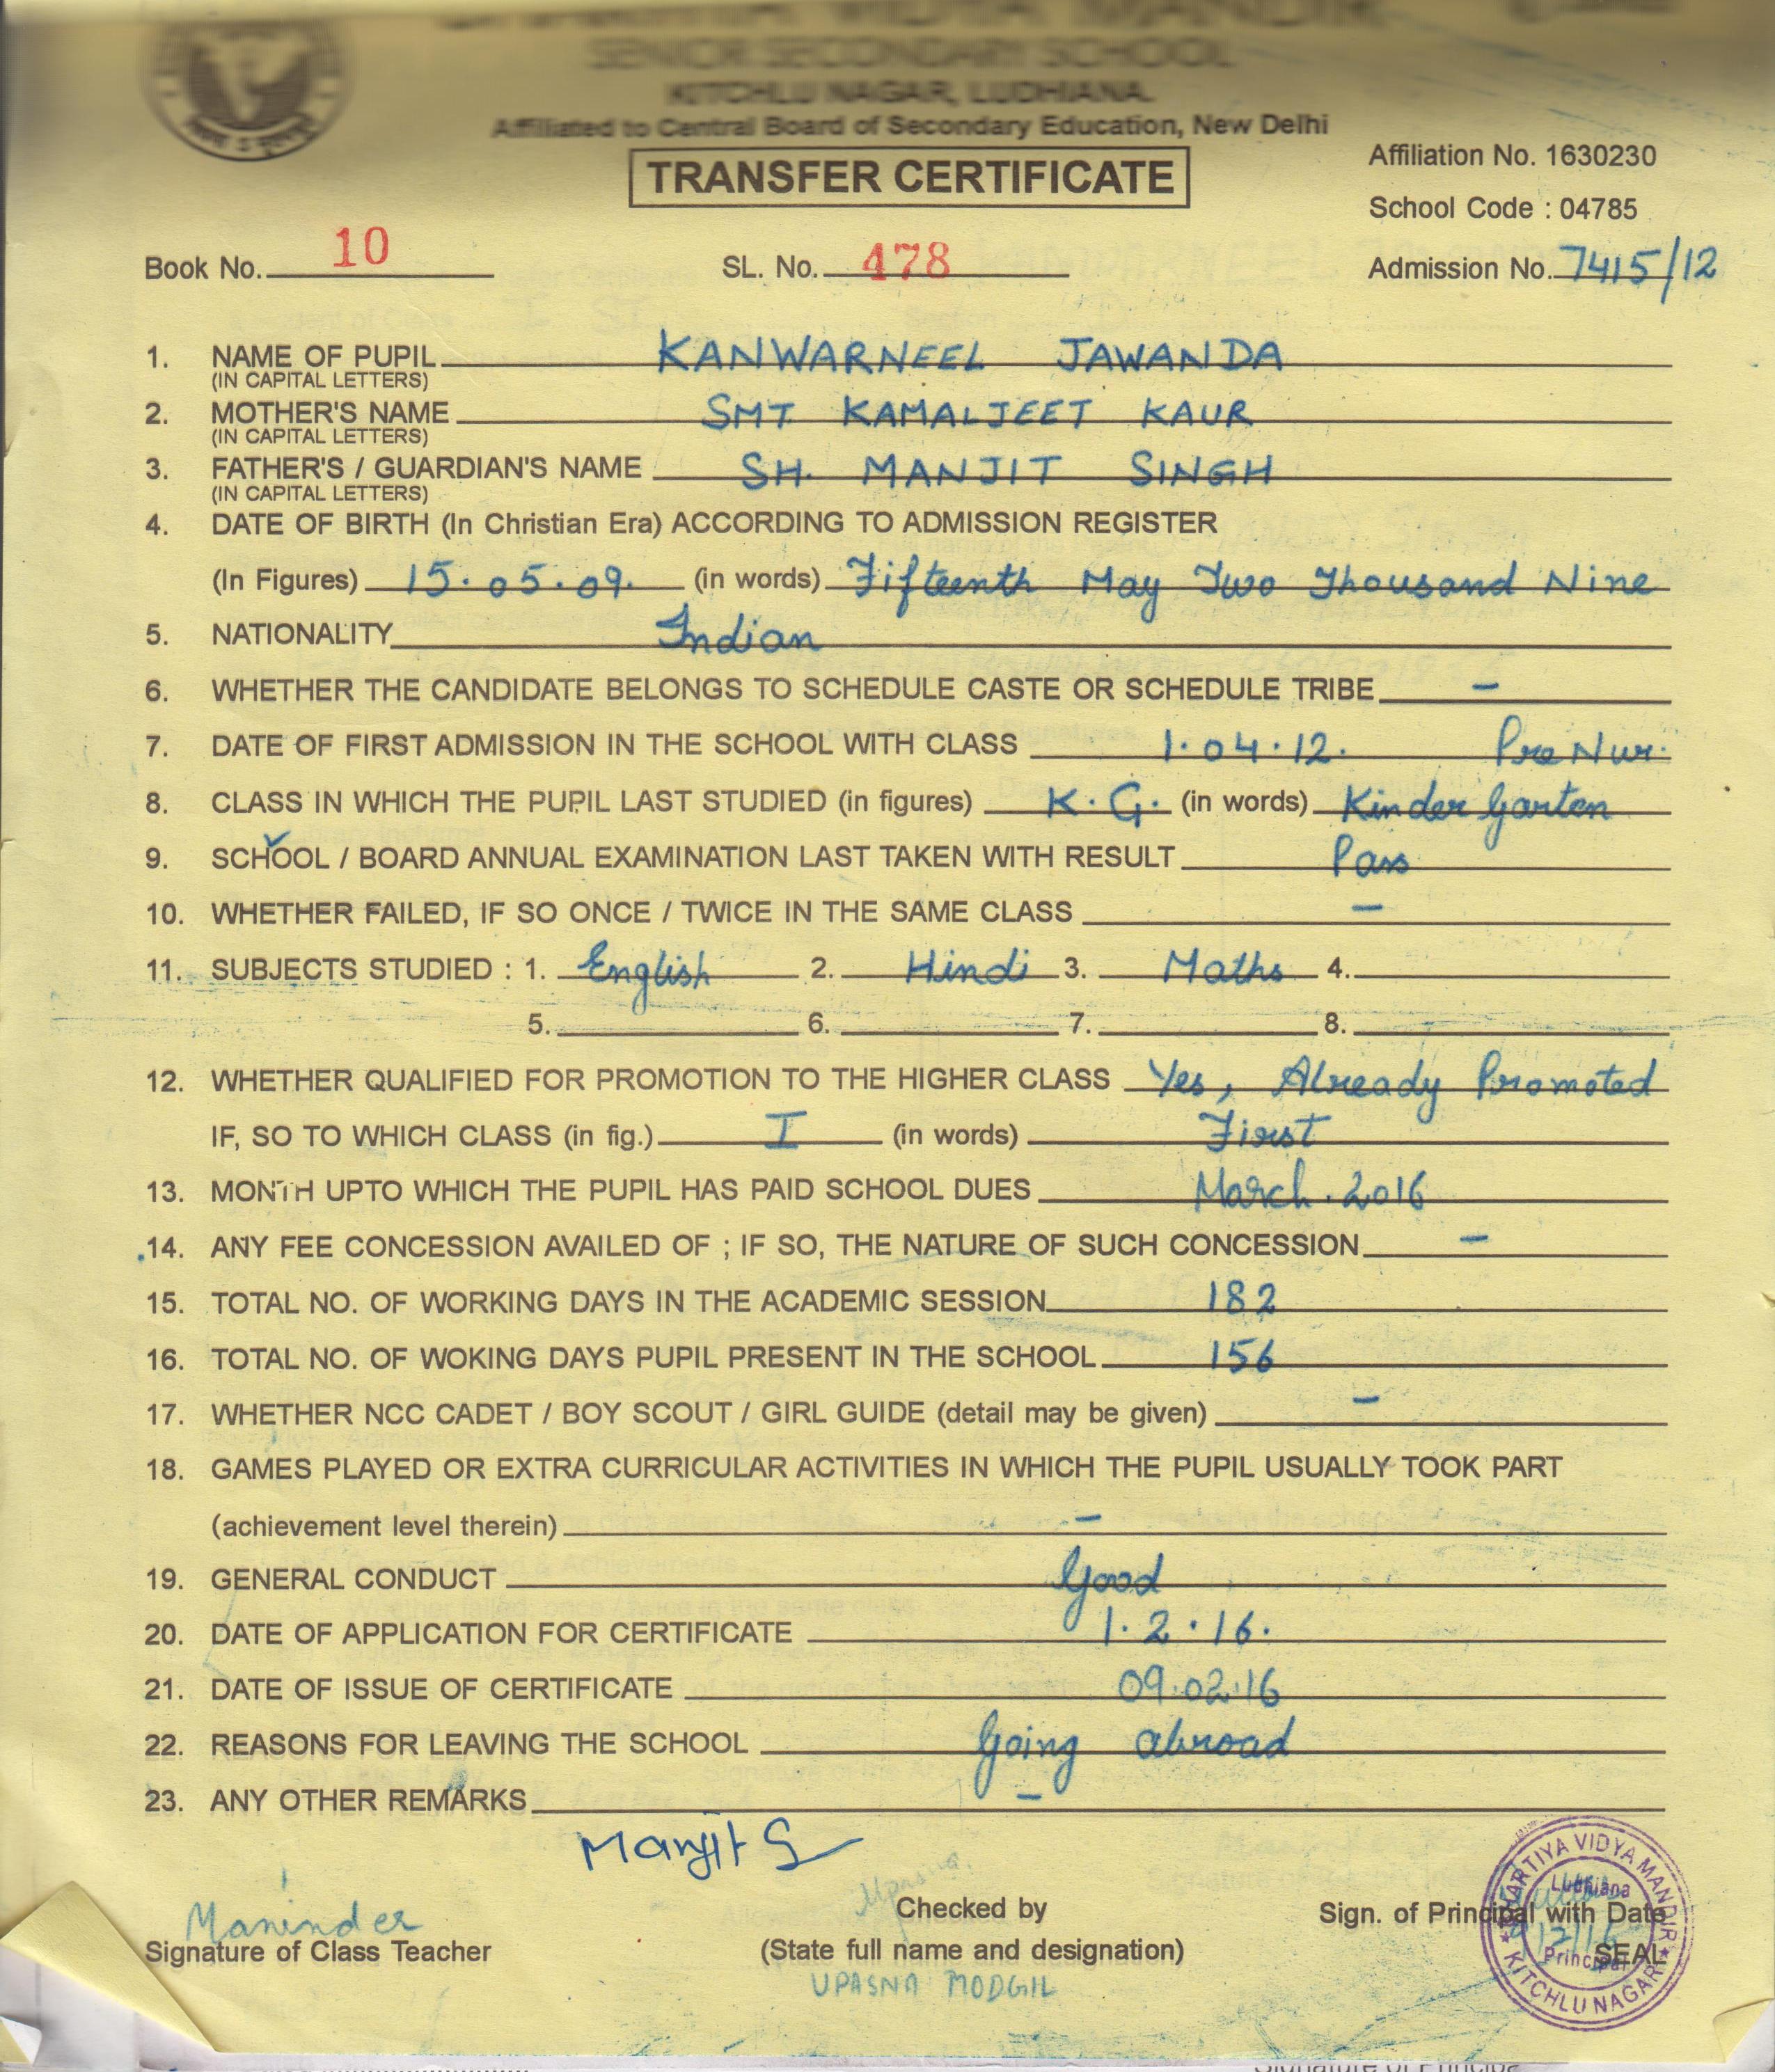 BHARTIYA VIDYA MANDIR
SENIOR SECONDARY SCHOOL
KITCHLU NAGAR, LUDHIANA.
Affiliated to Central Board of Secondary Education, New Delhi
TRANSFER CERTIFICATE
Affiliation No. 1630230
School Code : 04785
Book No. 10 SL. No. 478 Admission No. 7415/12
1. NAME OF PUPIL KANWARNEEL JAWANDA
(IN CAPITAL LETTERS)
2. MOTHER'S NAME SMT KAMALJEET KAUR
(IN CAPITAL LETTERS)
3. FATHER'S / GUARDIAN'S NAME SH. MANJIT SINGH
(IN CAPITAL LETTERS)
4. DATE OF BIRTH (In Christian Era) ACCORDING TO ADMISSION REGISTER
(In Figures) 15.05.09. (in words) Fifteenth May Two Thousand Nine
5. NATIONALITY Indian
6. WHETHER THE CANDIDATE BELONGS TO SCHEDULE CASTE OR SCHEDULE TRIBE –
7. DATE OF FIRST ADMISSION IN THE SCHOOL WITH CLASS 1.04.12. Pre Nur.
8. CLASS IN WHICH THE PUPIL LAST STUDIED (in figures) K.G. (in words) Kinder Garten
9. SCHOOL / BOARD ANNUAL EXAMINATION LAST TAKEN WITH RESULT Pass
10. WHETHER FAILED, IF SO ONCE / TWICE IN THE SAME CLASS –
11. SUBJECTS STUDIED : 1. English 2. Hindi 3. Maths 4.
5. 6. 7. 8.
12. WHETHER QUALIFIED FOR PROMOTION TO THE HIGHER CLASS Yes, Already Promoted
IF, SO TO WHICH CLASS (in fig.) I (in words) First
13. MONTH UPTO WHICH THE PUPIL HAS PAID SCHOOL DUES March.2016
14. ANY FEE CONCESSION AVAILED OF ; IF SO, THE NATURE OF SUCH CONCESSION –
15. TOTAL NO. OF WORKING DAYS IN THE ACADEMIC SESSION 182
16. TOTAL NO. OF WOKING DAYS PUPIL PRESENT IN THE SCHOOL 156
17. WHETHER NCC CADET / BOY SCOUT / GIRL GUIDE (detail may be given) –
18. GAMES PLAYED OR EXTRA CURRICULAR ACTIVITIES IN WHICH THE PUPIL USUALLY TOOK PART
(achievement level therein) –
19. GENERAL CONDUCT Good
20. DATE OF APPLICATION FOR CERTIFICATE 1.2.16.
21. DATE OF ISSUE OF CERTIFICATE 09.02.16
22. REASONS FOR LEAVING THE SCHOOL Going abroad
23. ANY OTHER REMARKS –
Manjit S
Maninder
Signature of Class Teacher
Upasna
Checked by
(State full name and designation)
UPASNA MODGIL
Sign. of Principal with Date
SEAL
BHARTIYA VIDYA MANDIR
Ludhiana
Principal
KITCHLU NAGAR